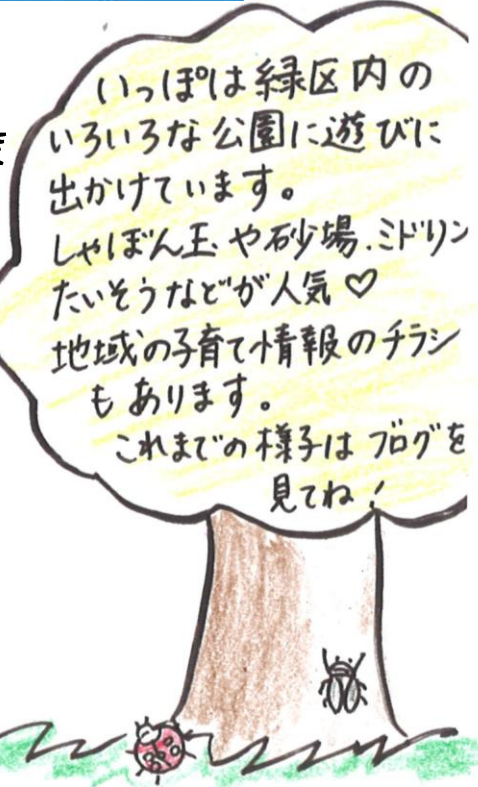 いっぽは緑区内の
いろいろな公園に遊びに
出かけています。
しゃぼん玉や砂場、ミドリン
たいそうなどが人気♡
地域の子育て情報のチラシ
もあります。
これまでの様子はブログを
見てね!